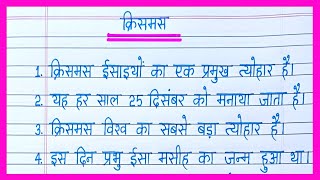 क्रिसमस
1. क्रिसमस ईसाइयों का एक प्रमुख त्योहार है।
2. यह हर साल 25 दिसंबर को मनाया जाता है।
3. क्रिसमस विश्व का सबसे बड़ा त्योहार है।
4. इस दिन प्रभु ईसा मसीह का जन्म हुआ था।